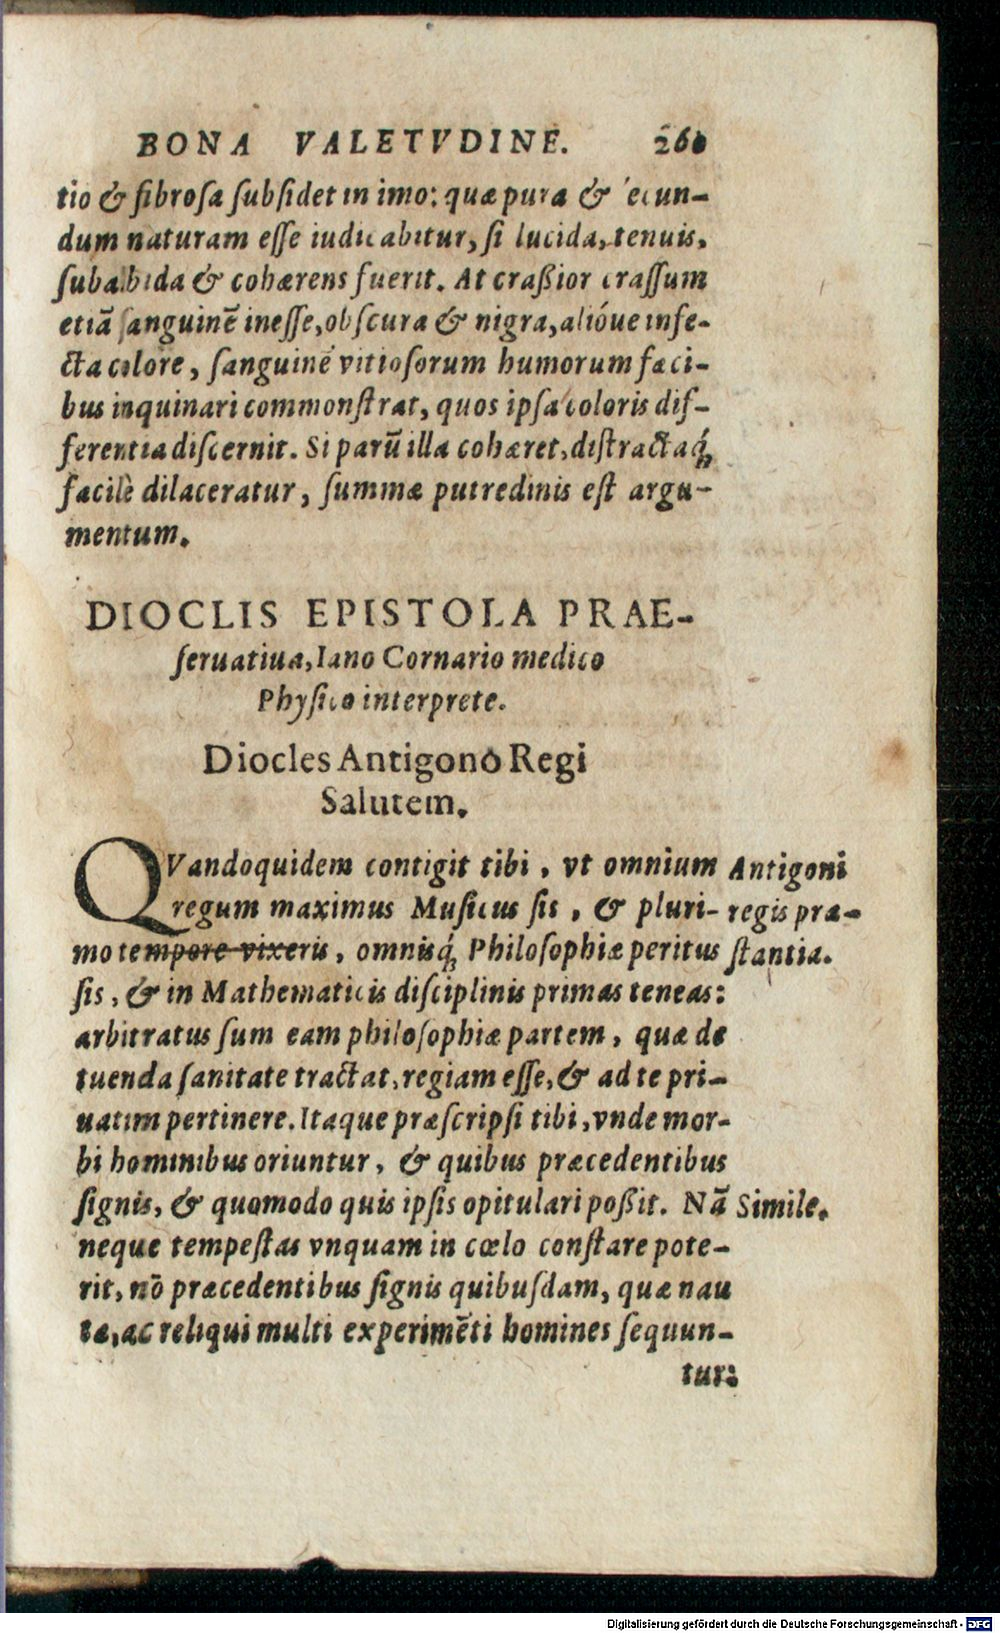 BONA VALETVDINE. 260
tio & fibroſa ſubſidet in imo: quæ pura & ſecun-
dum naturam eſſe iudicabitur, ſi lucida, tenuis,
ſubalbida & cohærens fuerit. At craßior craſſum
etiā ſanguinē ineſſe, obſcura & nigra, alióue infe-
cta colore, ſanguinē vitioſorum humorum fæci-
bus inquinari commonſtrat, quos ipſa coloris dif-
ferentia diſcernit. Si parū illa cohæret, diſtractaq́
facilè dilaceratur, ſummæ putredinis eſt argu-
mentum.
DIOCLIS EPISTOLA PRAE-
ſeruatiua, Iano Cornario medico
Phyſico interprete.
Diocles Antigono Regi
Salutem.
QVandoquidem contigit tibi, vt omnium Antigoni
regum maximus Muſicus ſis, & pluri- regis præ-
mo tempore vixeris, omnisq́ Philoſophiæ peritus ſtantia.
ſis, & in Mathematicis diſciplinis primas teneas:
arbitratus ſum eam philoſophiæ partem, quæ de
tuenda ſanitate tractat, regiam eſſe, & ad te pri-
uatim pertinere. Itaque præſcripſi tibi, vnde mor-
bi hominibus oriuntur, & quibus præcedentibus
ſignis, & quomodo quis ipſis opitulari poßit. Nā Simile.
neque tempeſtas vnquam in cœlo conſtare pote-
rit, nō præcedentibus ſignis quibuſdam, quæ nau
tæ, ac reliqui multi experimēti homines ſequun-
tur:
Digitalisierung gefördert durch die Deutsche Forschungsgemeinschaft - DFG